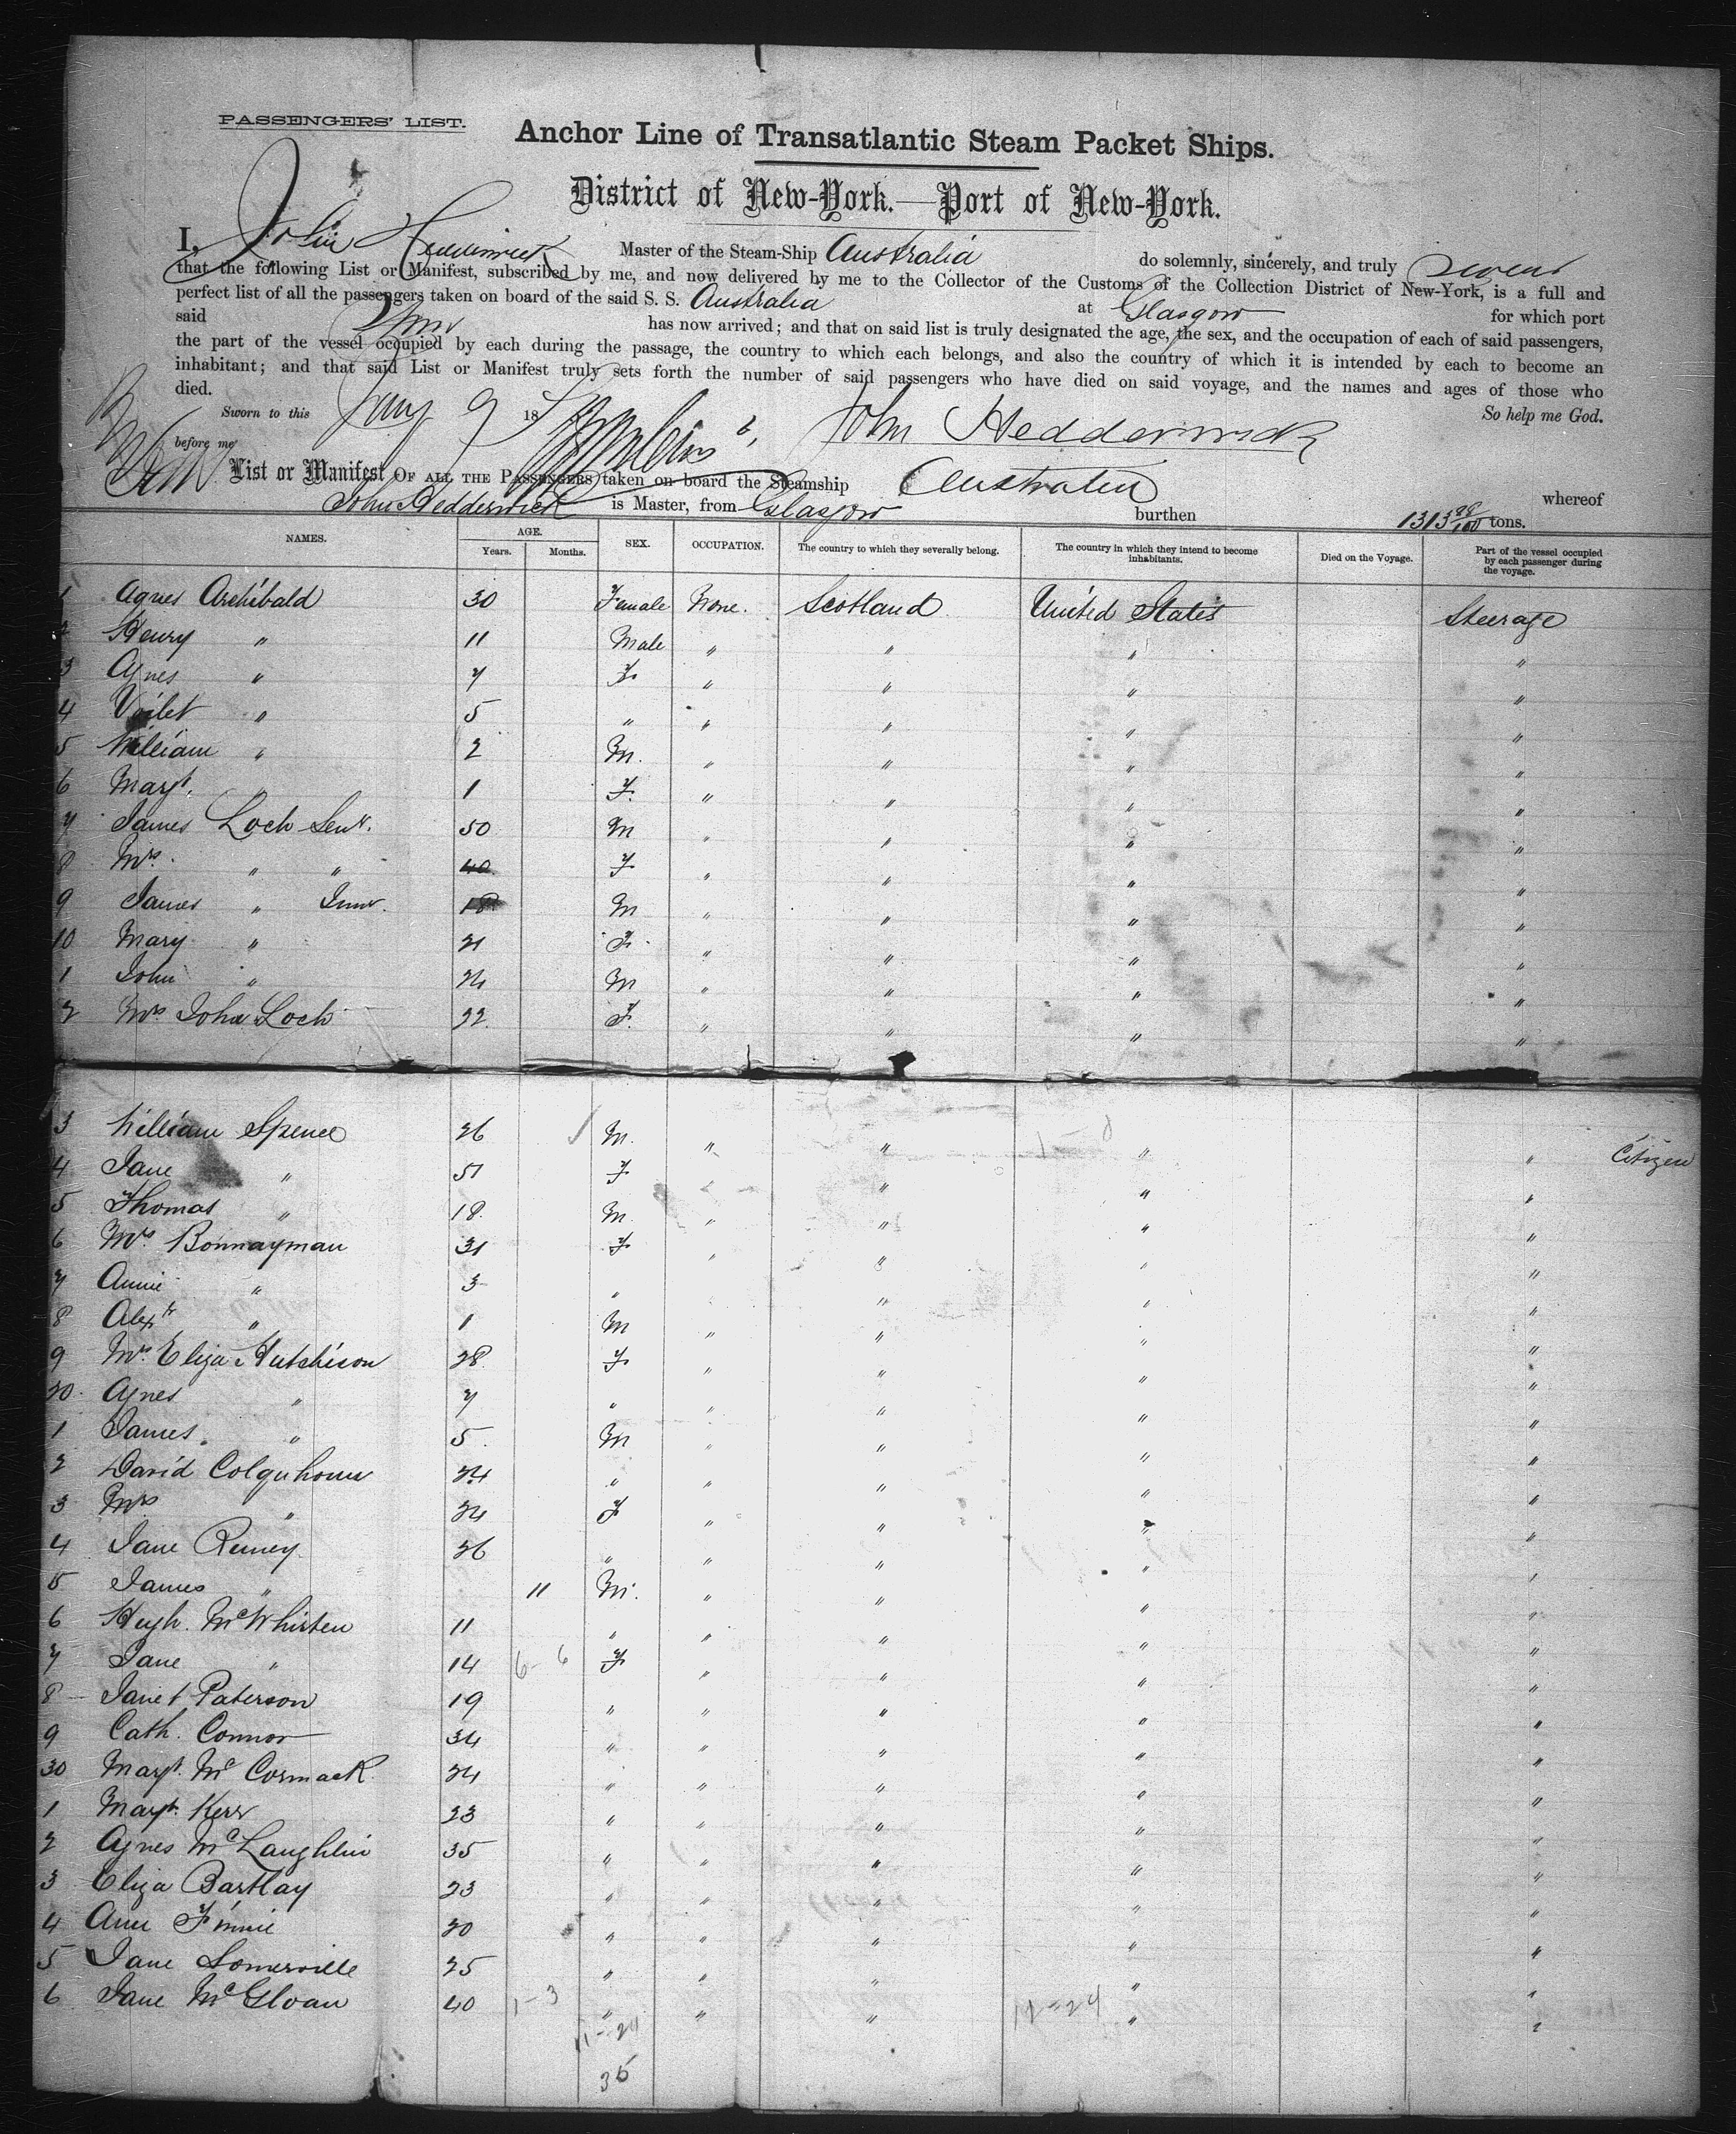 PASSENGERS' LIST.
Anchor Line of Transatlantic Steam Packet Ships.
District of New-York.—Port of New-York.
I, John Hedderwick Master of the Steam-Ship Australia do solemnly, sincerely, and truly swear
that the following List or Manifest, subscribed by me, and now delivered by me to the Collector of the Customs of the Collection District of New-York, is a full and
perfect list of all the passengers taken on board of the said S. S. Australia at Glasgow for which port
said has now arrived; and that on said list is truly designated the age, the sex, and the occupation of each of said passengers,
the part of the vessel occupied by each during the passage, the country to which each belongs, and also the country of which it is intended by each to become an
inhabitant; and that said List or Manifest truly sets forth the number of said passengers who have died on said voyage, and the names and ages of those who
died. So help me God.
Sworn to this 9 18 John Hedderwick
before me
List or Manifest OF ALL THE PASSENGERS taken on board the Steamship Australia whereof
John Hedderwick is Master, from Glasgow burthen 1313 98/100 tons.
NAMES. AGE. Years. Months. SEX. OCCUPATION. The country to which they severally belong. The country in which they intend to become inhabitants. Died on the Voyage. Part of the vessel occupied by each passenger during the voyage.
1 Agnes Archibald 30 Female None. Scotland United States Steerage
2 Henry " 11 Male " " " "
3 Agnes " 7 F " " " "
4 Voilet " 5 " " " " "
5 William " 2 M. " " " "
6 Margt. 1 F. " " " "
7 James Loch Senr. 50 M " " " "
8 Mrs. " " 40 F " " " "
9 James " Junr. 18 M " " " "
10 Mary " 21 F. " " " "
1 John " 24 M " " " "
2 Mrs John Loch 22. F. " " " "
3 William Spence 26 M. " " " " Citizen
4 Jane " 51 F " " " "
5 Thomas " 18. M. " " " "
6 Mrs. Bonnayman 31 F " " " "
7 Annie " 3 " " " " "
8 Alexr " 1 M " " " "
9 Mrs. Eliza Hutchison 28. F " " " "
20. Agnes " 7 " " " " "
1 James. " 5. M " " " "
2 David Colquhoun 24 " " " " "
3 Mrs " 24 F " " " "
4 Jane Remey 26 " " " " "
5 James " 11 M. " " " "
6 Hugh. McWhirten 11 " " " " "
7 Jane " 14 6- 6 F " " " "
8 Janet Paterson 19 " " " " "
9 Cath. Connor 34 " " " " "
30 Margt. Mc Cormack 24 " " " " "
1 Margt. Kerr 23 " " " " "
2 Agnes McLaughlin 35 " " " " "
3 Eliza Bartlay 23 " " " " "
4 Ann Finnie 20 " " " " "
5 Jane Somerville 25 " " " " "
6 Jane McGloan 40 1-3 " " " 12-24 " "
11-24
35